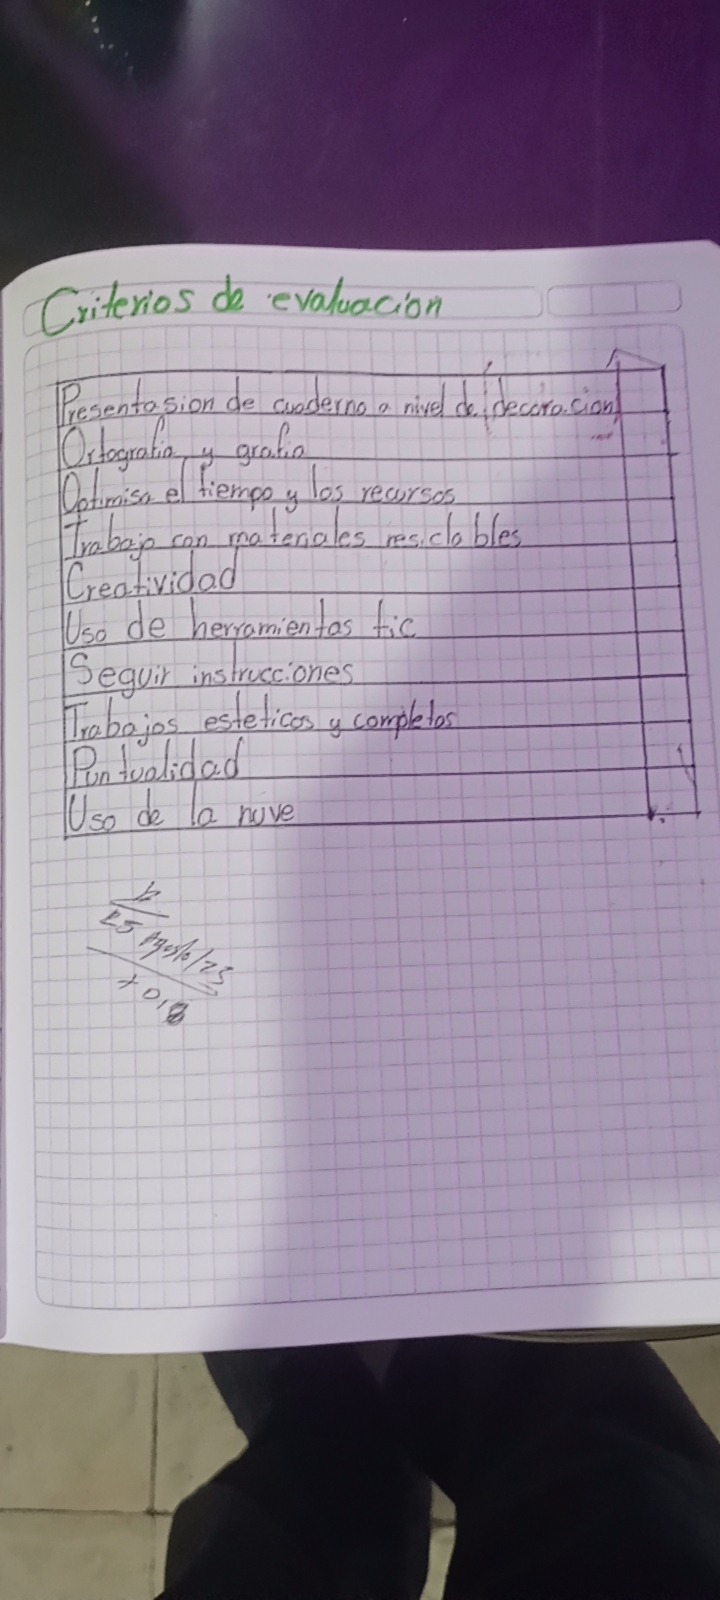 Criterios de evaluacion
Presentasion de cuaderno a nivel de decoracion
Ortografia y grafia
Optimisa el tiempo y los recursos
Trabajo con materiales resiclables
Creatividad
Uso de herramientas tic
Seguir instrucciones
Trabajos esteticos y completos
Puntualidad
Uso de la nuve
25 Agosto/23
+0,8